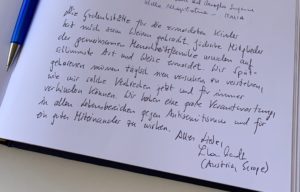 Die Gedenkstätte für die ermordeten Kinder
hat mich zum Weinen gebracht. Jüdische Mitglieder
der gemeinsamen Menschheitsfamilie wurden auf
Art und Weise ermordet. Die Spät-
geborenen müssen täglich neu versuchen zu verstehen,
wie wir solche Verbrechen jetzt und für immer
verhindern können. Wir haben eine große Verantwortung,
in allen Lebensbereichen gegen Antisemitismus und für
ein gutes Miteinander zu wirken.
Alles Liebe,
(Austrian